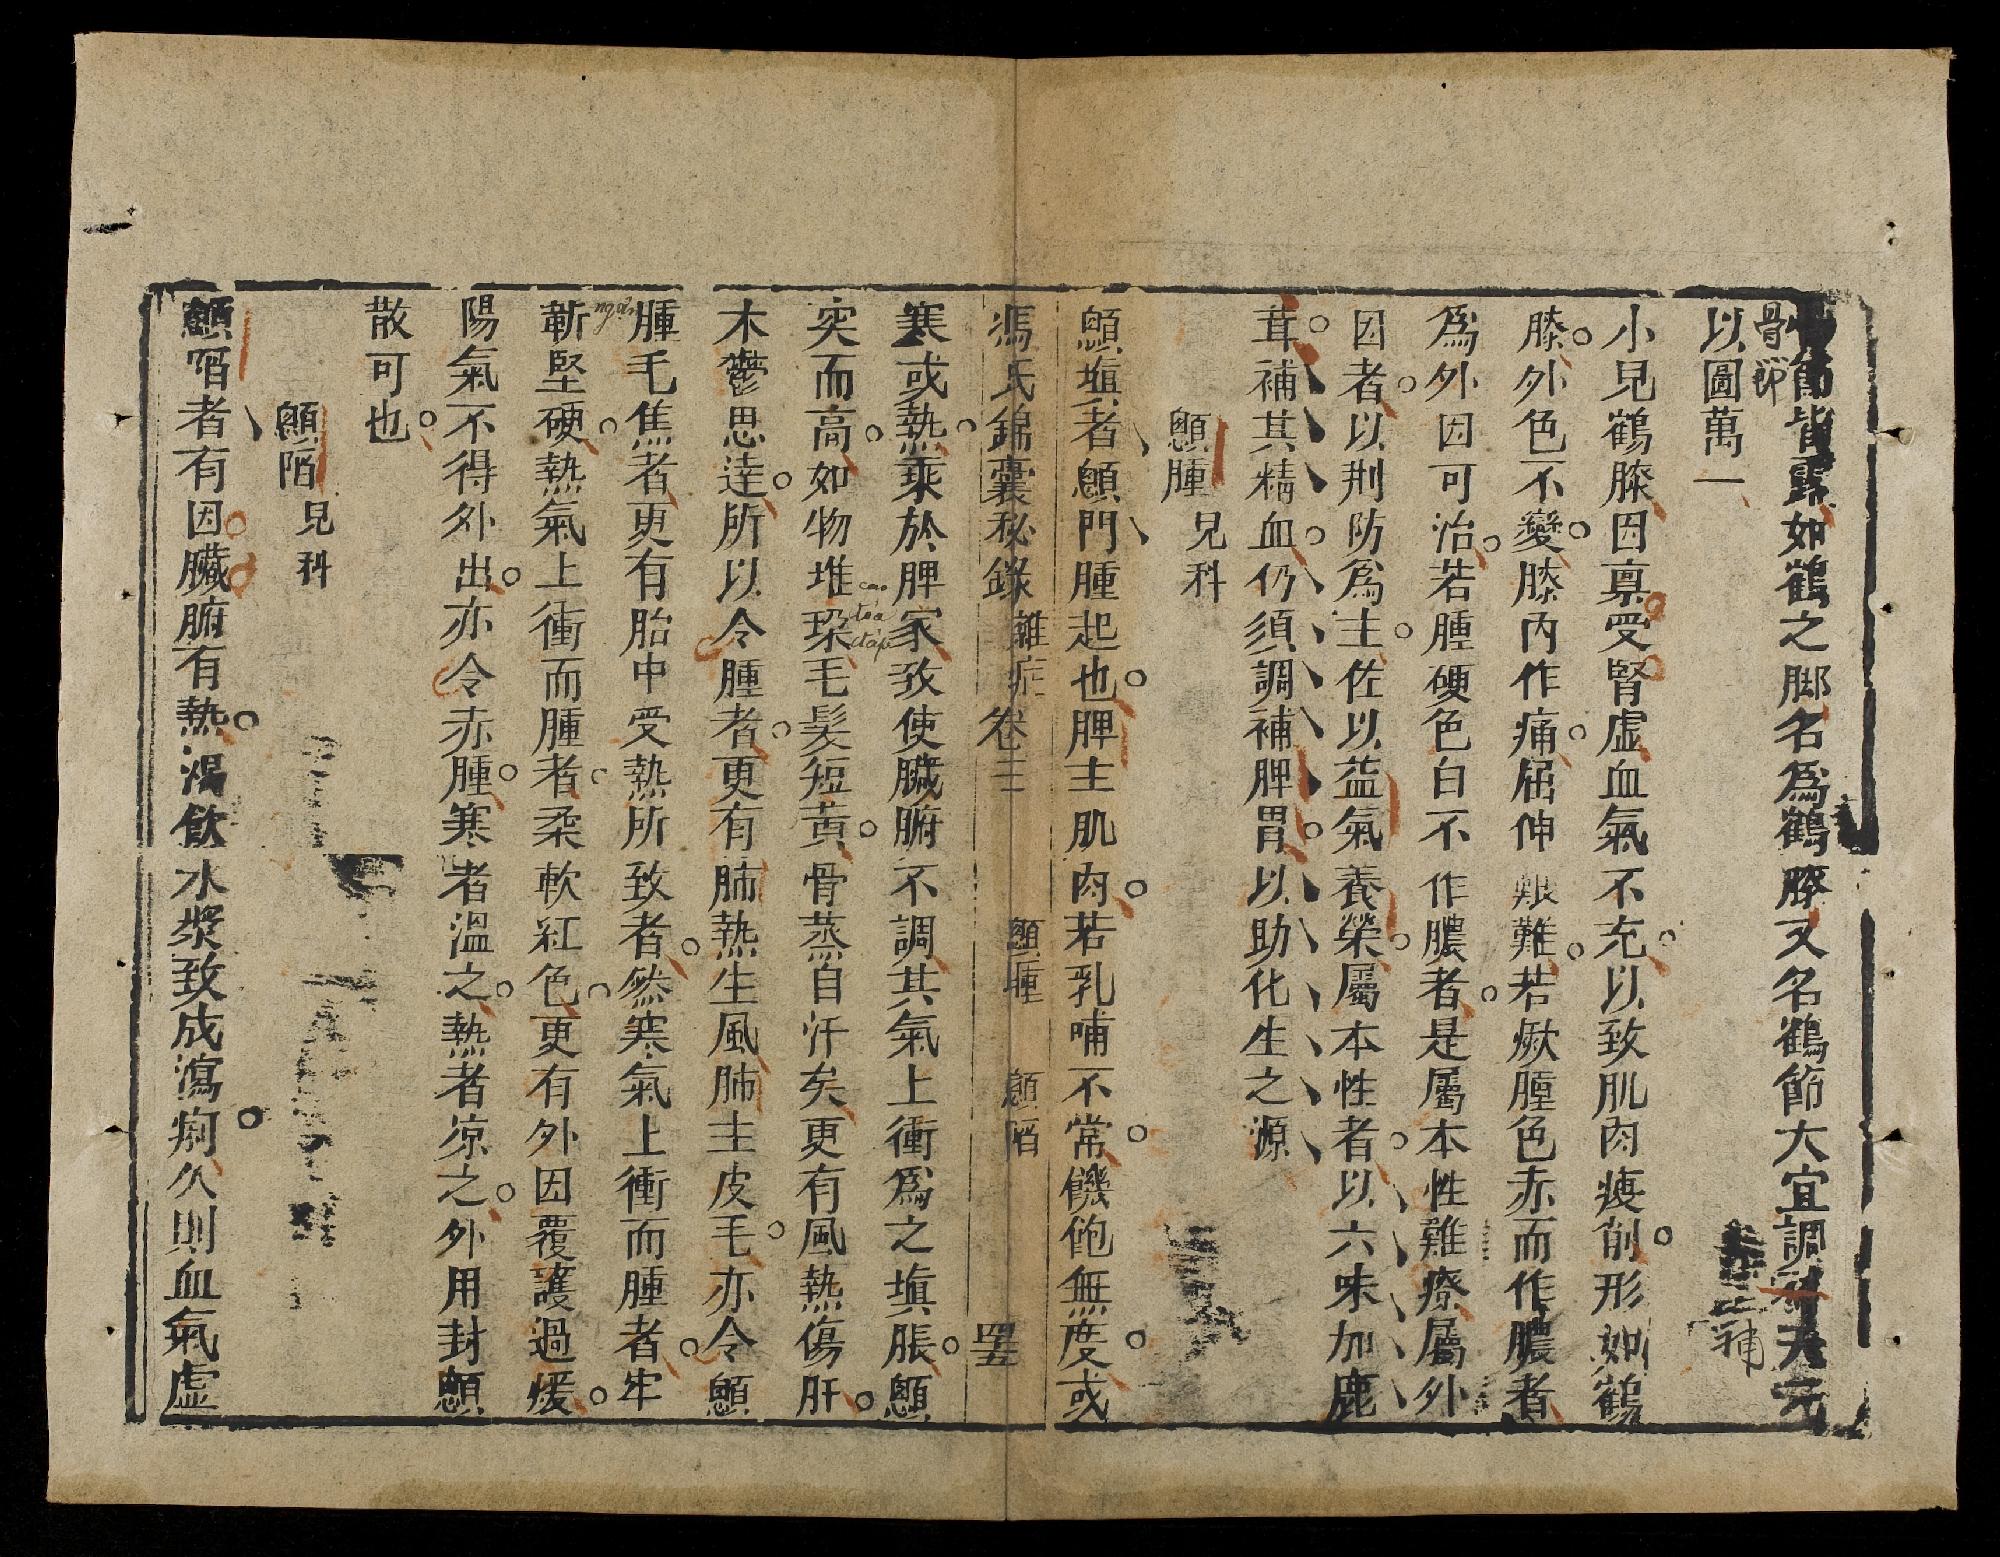 骨節皆露如鶴之脚名爲鶴膝又名鶴節大宜調補天元
骨節
補
以圖萬一
小兒鶴膝因禀受腎虛血氣不充以致肌肉瘦削形如鶴
膝外色不變膝內作痛屈伸艱難若焮腫色赤而作膿者
爲外因可治若腫硬色白不作膿者是屬本性難療屬外
因者以荆防爲主佐以益氣養榮屬本性者以六味加鹿
茸補其精血仍須調補脾胃以助化生之源
顖腫 兒科
顖塡者顖門腫起也脾主肌肉若乳哺不常饑飽無度或
馮氏錦囊秘錄 雜症 卷三 顖腫 顖陷 四五
寒或熱乘於脾家致使臟腑不調其氣上衝爲之塡脹顖
突而高如物堆琛毛髮短黃骨蒸自汗矣更有風熱傷肝
cao
toả
đắp
木鬱思達所以令腫者更有肺熱生風肺主皮毛亦令顖
腫毛焦者更有胎中受熱所致者然寒氣上衝而腫者牢
靳堅硬熱氣上衝而腫者柔軟紅色更有外因覆護過煖
陽氣不得外出亦令赤腫寒者溫之熱者凉之外用封顖
散可也
顖陷 兒科
顖陷者有因臟腑有熱渴飲水漿致成瀉痢久則血氣虛